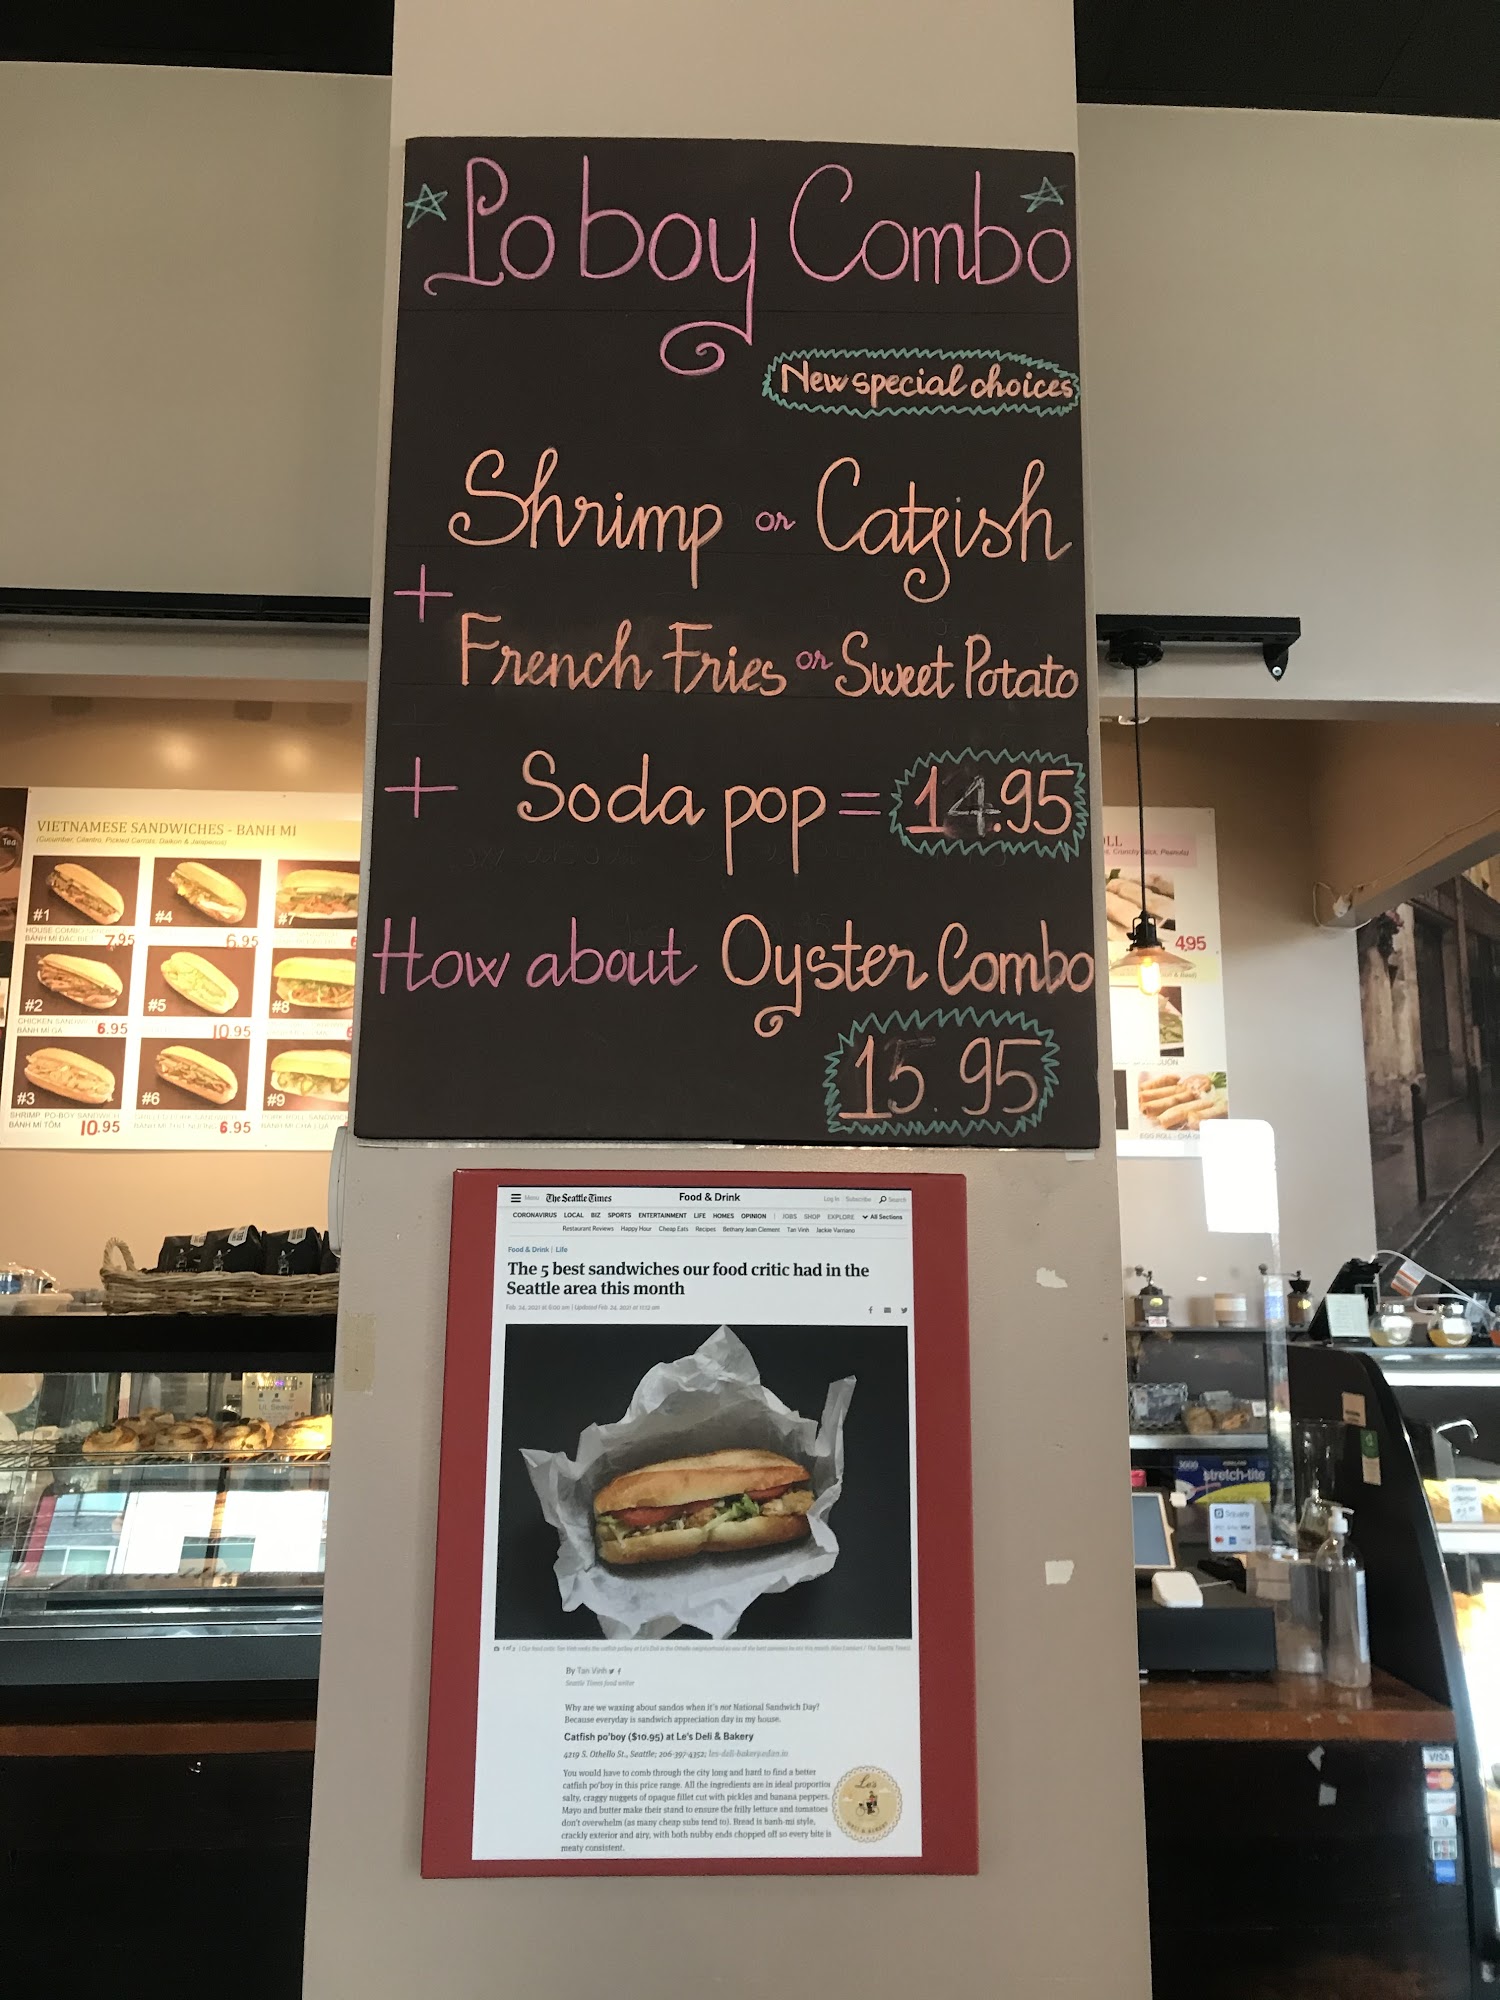 Po boy Combo
New special choices
Shrimp or Catfish
+
French Fries or Sweet Potato
+ Soda pop = 14.95
How about Oyster Combo
15.95
Tea
VIETNAMESE SANDWICHES - BANH MI
(Cucumber, Cilantro, Pickled Carrots, Daikon & Jalapenos)
#1
#4
#7
7.95
6.95
#2
#5
#8
CHICKEN SANDWICH
BÁNH MÌ GÀ 6.95
10.95
#3
#6
#9
SHRIMP PO-BOY SANDWICH
BÁNH MÌ TÔM 10.95
6.95
4.95
Menu The Seattle Times Food & Drink Log In Subscribe Search
CORONAVIRUS LOCAL BIZ SPORTS ENTERTAINMENT LIFE HOMES OPINION | JOBS SHOP EXPLORE All Sections
Restaurant Reviews Happy Hour Cheap Eats Recipes Bethany Jean Clement Tan Vinh Jackie Varriano
Food & Drink | Life
The 5 best sandwiches our food critic had in the
Seattle area this month
Feb. 24, 2021 at 6:00 am | Updated Feb. 24, 2021 at 11:12 am
By Tan Vinh
Seattle Times food writer
Why are we waxing about sandos when it's not National Sandwich Day?
Because everyday is sandwich appreciation day in my house.
Catfish po'boy ($10.95) at Le's Deli & Bakery
4219 S. Othello St., Seattle; 206-397-4352; les-deli-bakery.edan.io
You would have to comb through the city long and hard to find a better
catfish po'boy in this price range. All the ingredients are in ideal proportion
salty, craggy nuggets of opaque fillet cut with pickles and banana peppers.
Mayo and butter make their stand to ensure the frilly lettuce and tomatoes
don't overwhelm (as many cheap subs tend to). Bread is banh-mi style,
crackly exterior and airy, with both nubby ends chopped off so every bite is
meaty consistent.
Le's
DELI & BAKERY
stretch-tite
Square
VISA